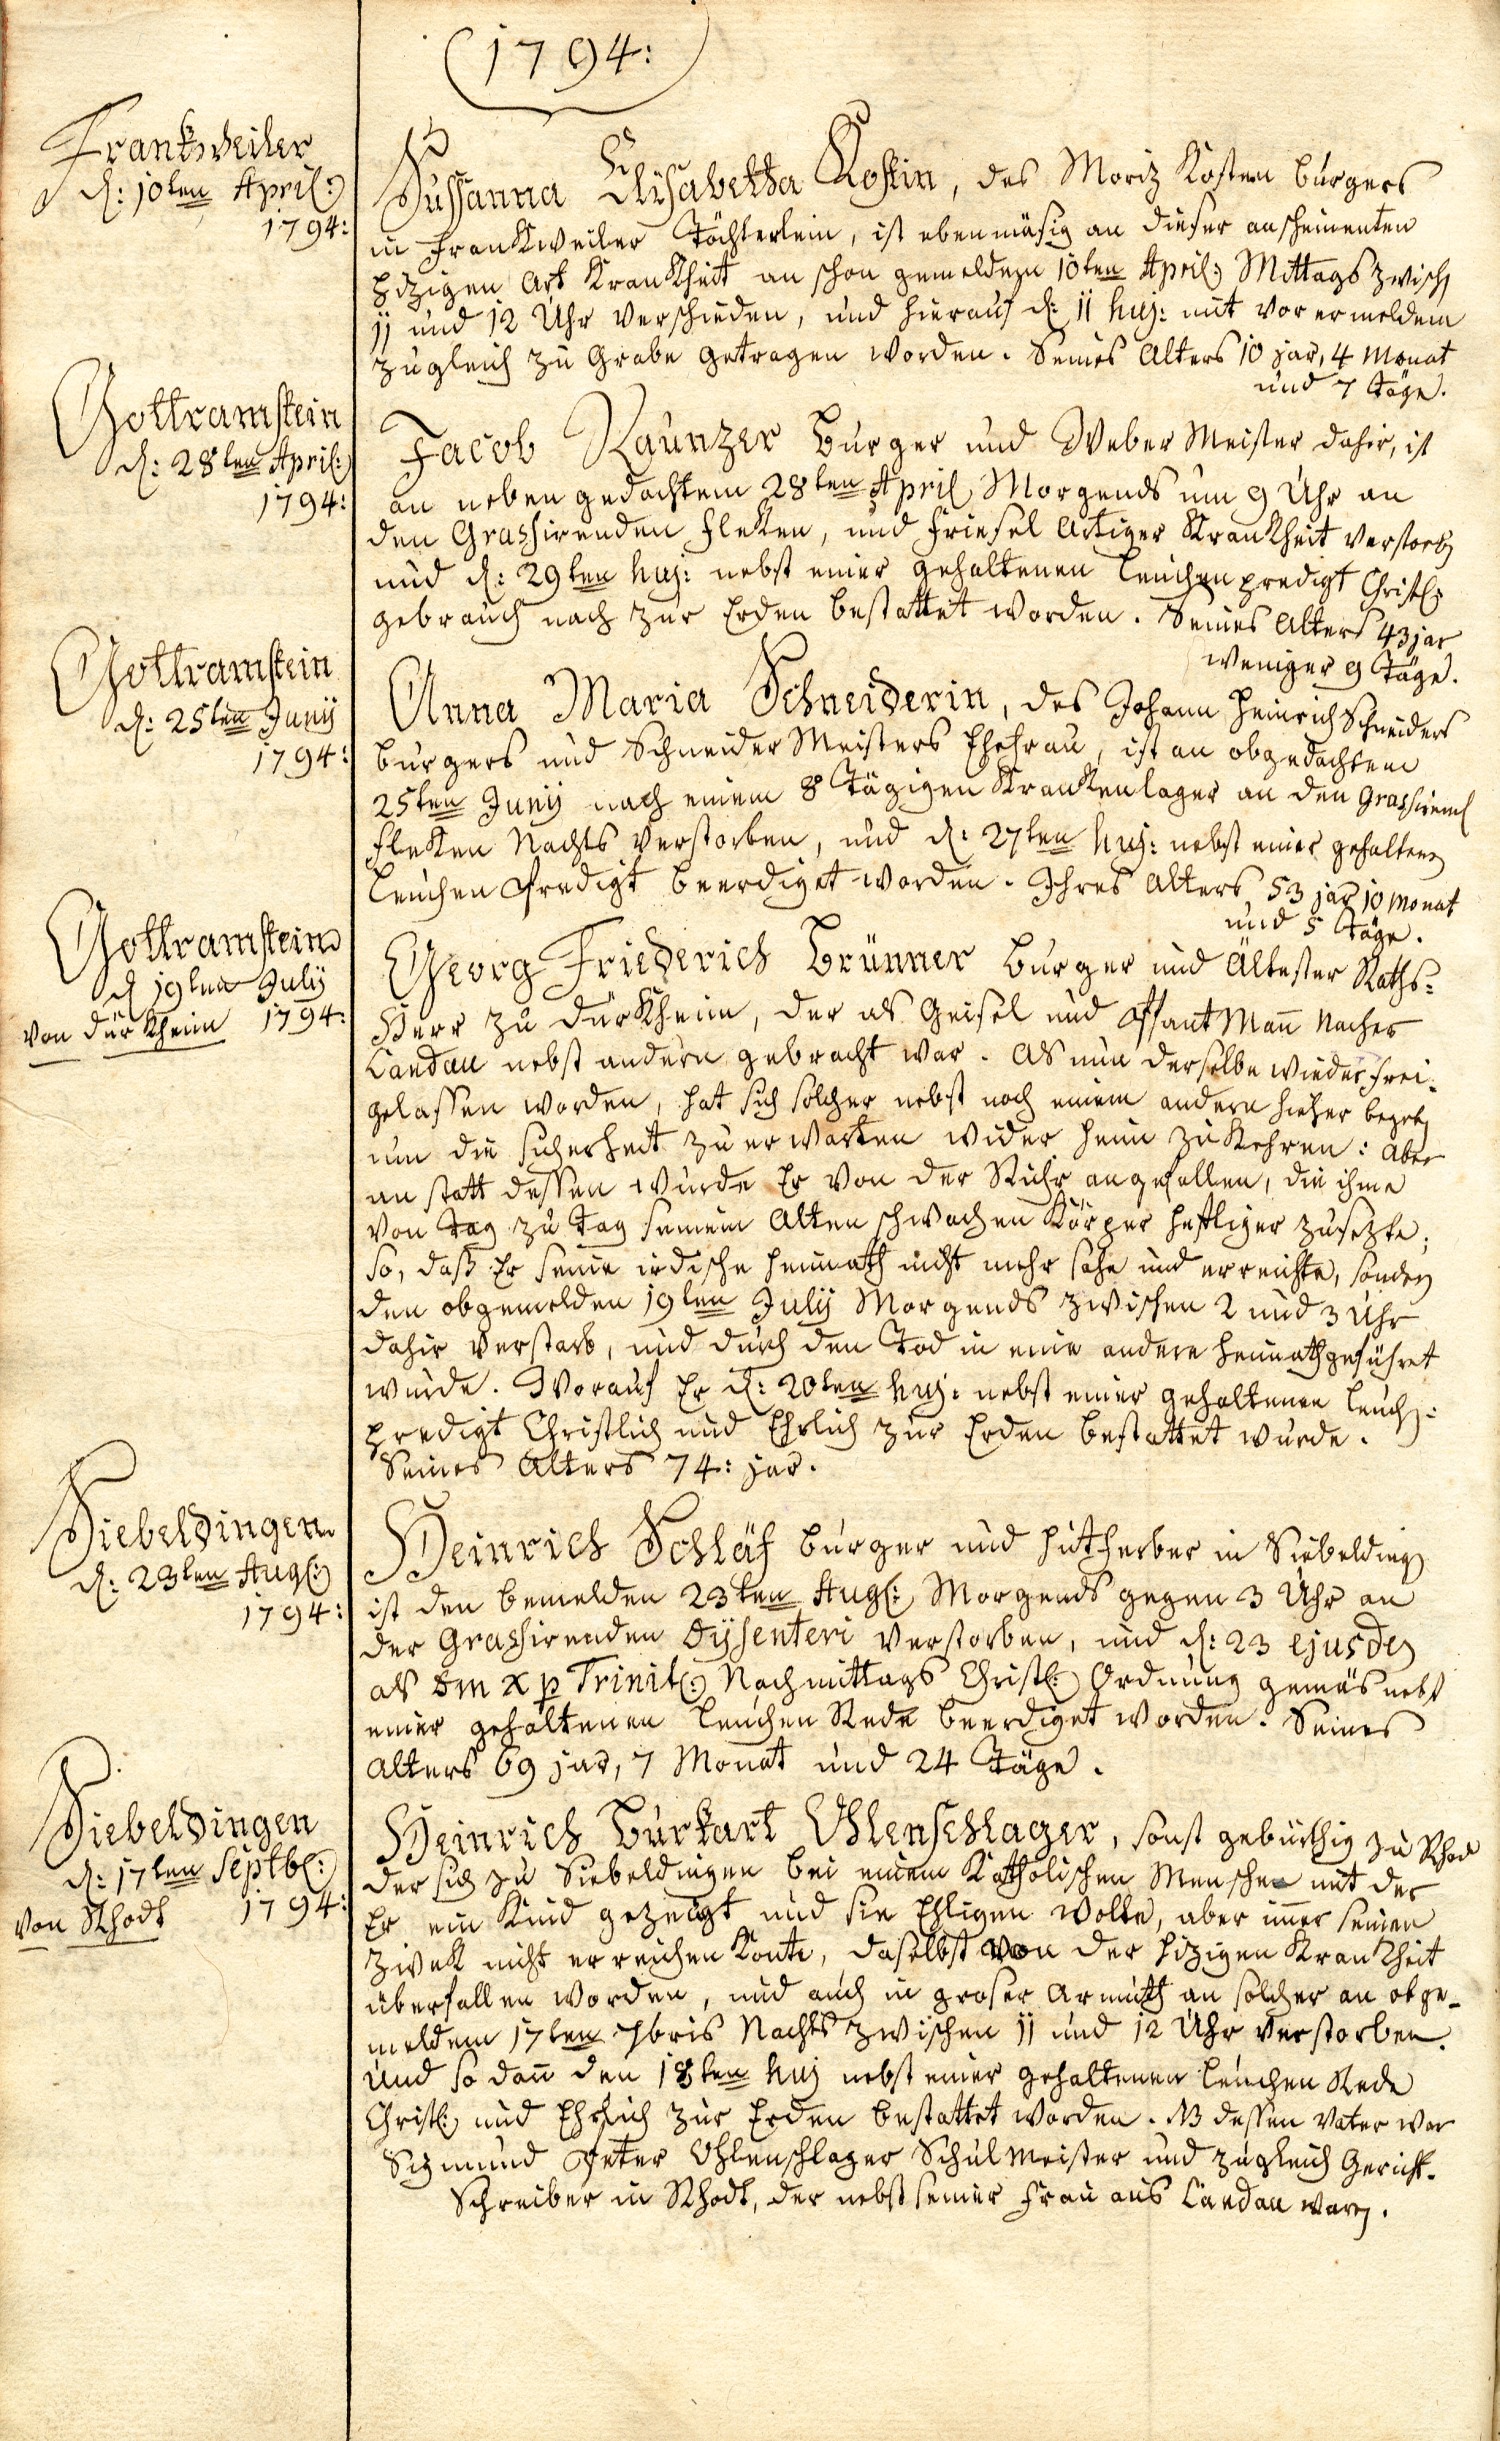 1794:
Frankweiler
d: 10ten April:
1794:
Susanna Elisabetha Kostin, des Moriz Kosten burgers
in Frankweiler Töchterlein, ist ebenmäsig an dieser anscheinenten
hizigen Art Krankheit an schon gemelden 10ten April: Mittags zwisch
11 und 12 Uhr verschieden, und hierauf d: 11 huj: mit vor ermeldem
zugleich zu Grabe getragen worden. Seines Alters 10 jar, 4 Monat
und 7 Täge.
Gottramstein
d: 28ten April:
1794:
Jacob Kaunzer Burger und Weber Meister dahir, ist
an neben gedachtem 28ten April Morgends um 9 Uhr an
den Grassirenden fleken, und friesel Artiger Krankheit verstorb
und d: 29ten huj: nebst einer gehaltenen leichenpredigt Christl:
gebrauch nach zur Erden bestattet worden. Seines Alters 43 jar
weniger 9 Täge.
Gottramstein
d: 25ten Junij
1794:
Anna Maria Schneiderin, des Johann Heinrich Schneiders
burgers und Schneider Meisters Ehefrau, ist an obgedachtem
25ten Junij nach einem 8 Tägigen Krankenlager an den Grassirend
fleken Nachts verstorben, und d: 27ten huj: nebst einer gehaltenen
leichen Predigt beerdiget worden. Ihres Alters 53 jar 10 Monat
und 5 Täge.
Gottramstein
d 19ten Julij
von dürkheim 1794:
Georg Friederich Brünner Burger und Ältester Raths=
Herr zu dürkheim, der als Geisel und Pfant Mann nacher
Landau nebst andern gebracht war. Als nun derselbe wieder frei=
gelassen worden, hat sich solcher nebst noch einem andern hieher begeb
um die sicherheit zu erwarten wider heim zu kehren: Aber
an statt dessen wurde Er von der Ruhr angefallen, die ihme
von Tag zu Tag seinem Alten schwachen Körper heftiger zusezte;
so, daß Er seine irdische heimath nicht mehr sahe und erreichte, sondern
den obgemelden 19ten Julij Morgends zwischen 2 und 3 Uhr
dahir verstarb, und durch den Tod in eine andere heimath geführet
wurde. Worauf Er d: 20ten huj: nebst einer gehaltenen leich=
predigt Christlich und Ehrlich zur Erden bestattet wurde.
Seines Alters 74: jar.
Siebeldingen
d: 23ten Aug:
1794:
Heinrich Schläf burger und hutherber in Siebelding
ist den bemelden 23ten Aug: Morgends gegen 3 Uhr an
der Grassirenden Dysenteri verstorben, und d: 23 ejusdem
als Dm X p Trinit: Nachmittags Christl: Ordnung gemäs nebst
einer gehaltenen leichen Rede beerdiget worden. Seines
Alters 69 jar, 7 Monat und 24 Täge.
Siebeldingen
d: 17ten Septb:
von Rhodt 1794:
Heinrich Burkart Uhlenschlager, sonst gebürthig zu Rhod
der sich zu Siebeldingen bei einem Katholischen Menschen mit der
Er ein Kind gezeugt und sie Ehligen wolte, aber immer seinen
zwek nicht erreichen konte, daselbst von der hizigen Krankheit
überfallen worden, und auch in groser Armuth an solcher an obge-
meldem 17ten 7bris Nachts zwischen 11 und 12 Uhr verstorben.
Und so dann den 18ten huj nebst einer gehaltenen leichen Rede
Christl: und Ehrlich zur Erden bestattet worden. NB dessen Vater war
Sigmund Peter Uhlenschlager Schulmeister und zugleich Gericht-
Schreiber in Rhodt, der nebst seiner frau aus Landau waren.